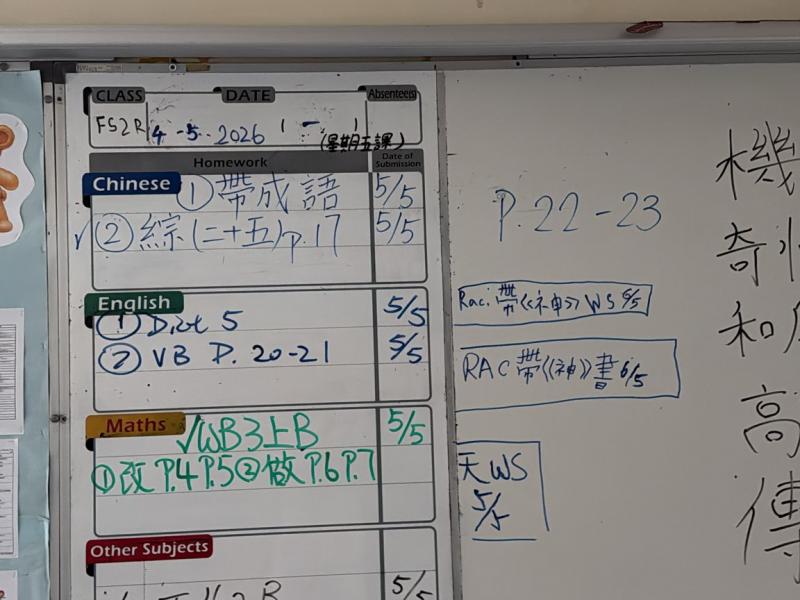 CLASS DATE Absentee(s)
FS2R 4-5-2026 ( - )
(星期五課)
Homework Date of Submission
Chinese ① 帶成語 5/5
✓② 綜(二十五)p.17 5/5
English
① Dict 5 5/5
② VB P. 20-21 5/5
Maths ✓WB3上B 5/5
① 改 P.4 P.5 ② 做 P.6 P.7
Other Subjects
5/5
P.22-23
Rac. 帶《神》WS 5/5
RAC 帶《神》書 6/5
天 WS
5/5
機
奇
和
高
傳